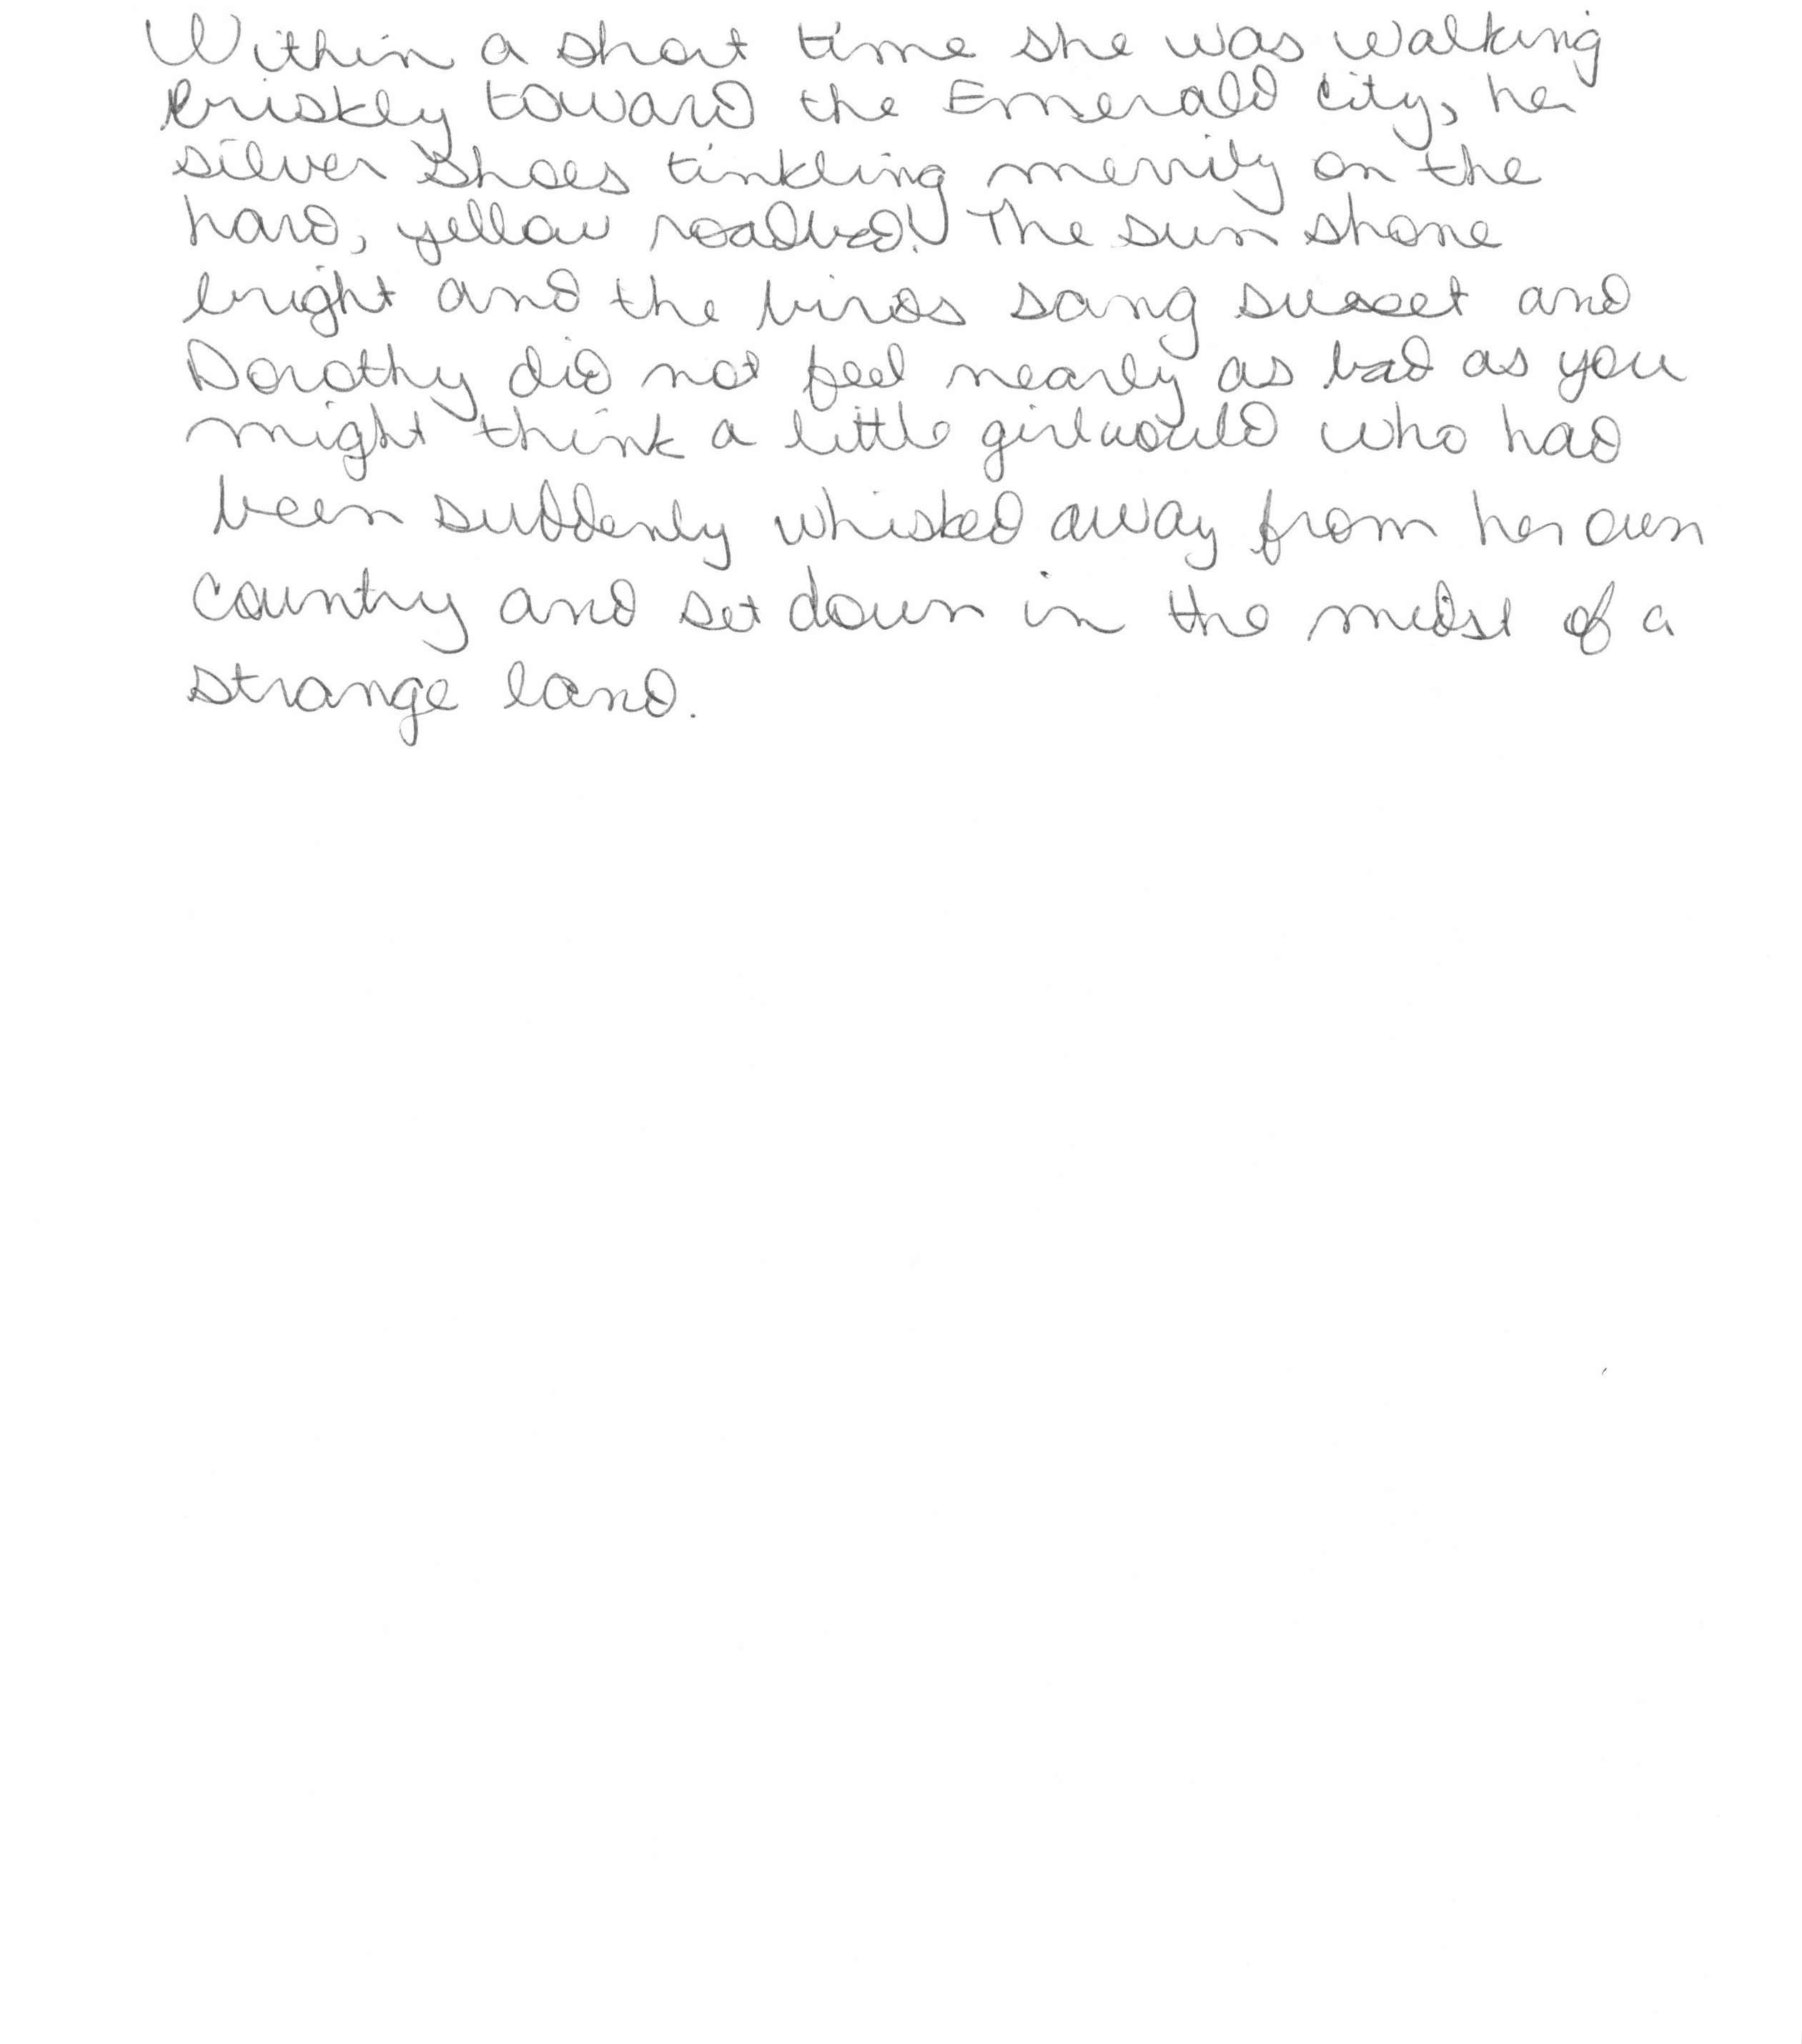 Within a short time she was walking
briskly toward the Emerald City, her
silver Shoes tinkling merrily on the
hard, yellow roadbed. The sun shone
bright and the birds sang sweet and
Dorothy did not feel nearly as bad as you
might think a little girl would who had
been suddenly whisked away from her own
country and set down in the midst of a
strange land.